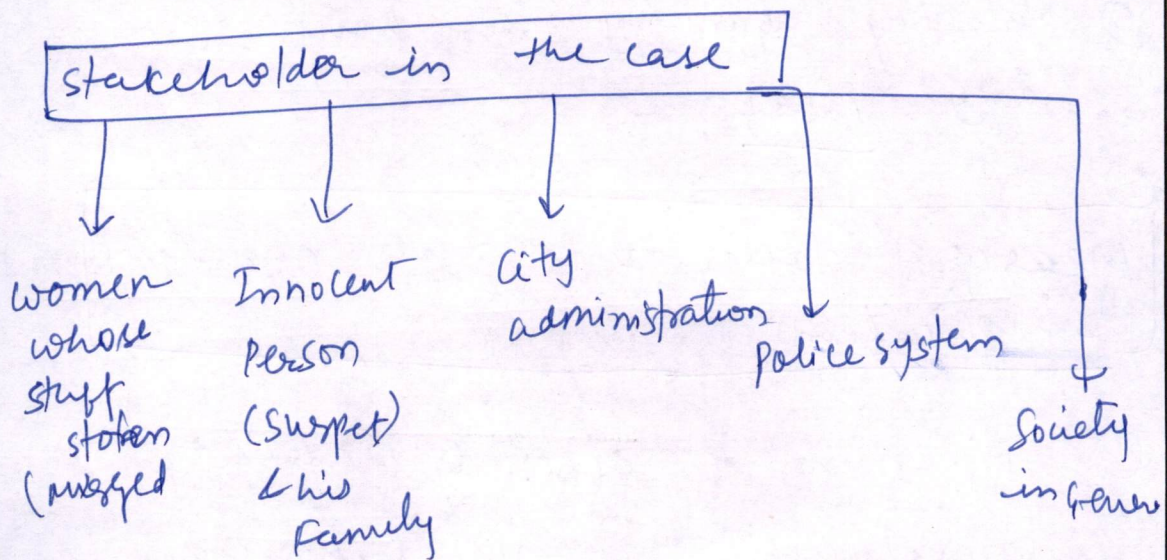 stakeholder in the case
women
whose
stuff
stolen
(mugged
Innocent
Person
(Suspet)
& his
Family
City
administration
police system
Society
in Gener